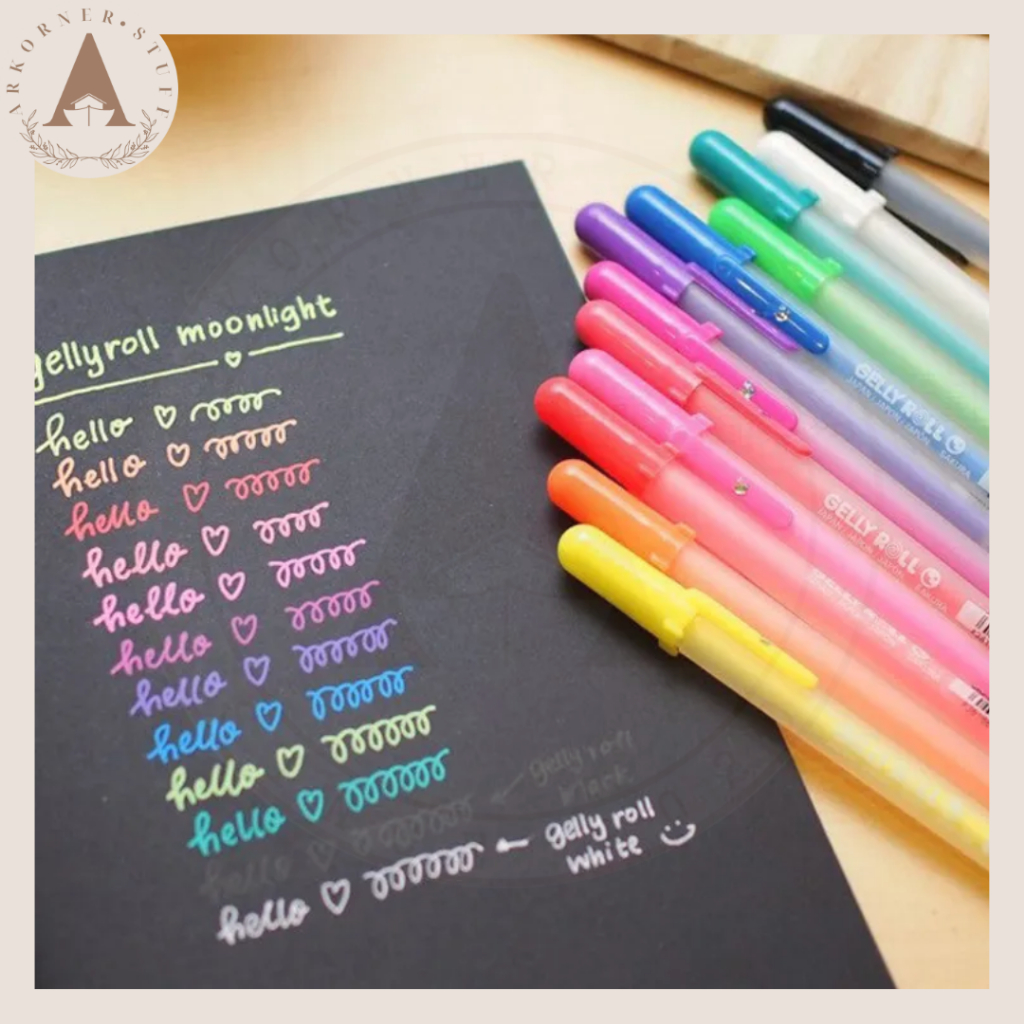 ARKORNER•STUFF
gellyroll moonlight
hello
hello
hello
hello
hello
hello
hello
hello
hello
hello
gelly roll
black
hello
hello
gelly roll
white
GELLY ROLL
JAPAN / JAPON / JAPÓN
SAKURA
GELLY ROLL
JAPAN / JAPON / JAPÓN
SAKURA